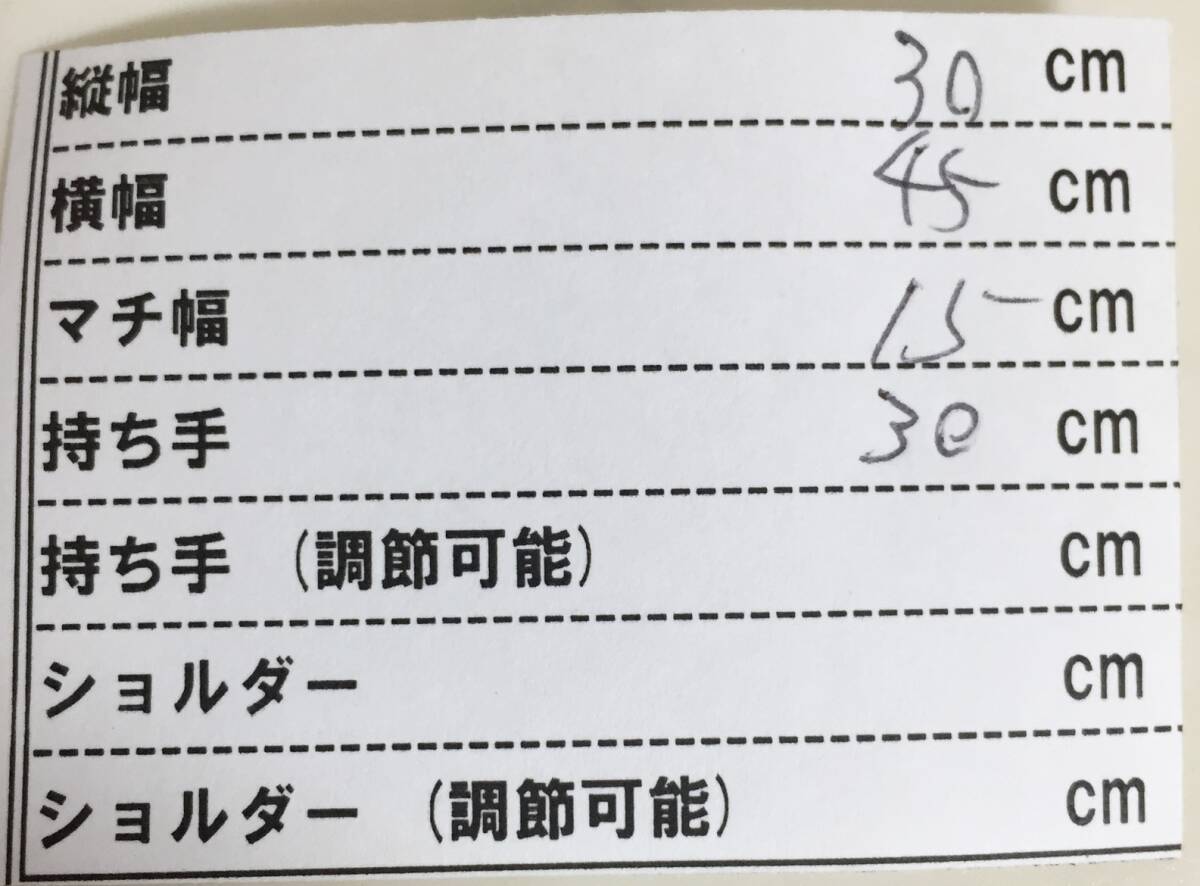 縦幅 30 cm
横幅 45 cm
マチ幅 15 cm
持ち手 30 cm
持ち手 (調節可能) cm
ショルダー cm
ショルダー (調節可能) cm